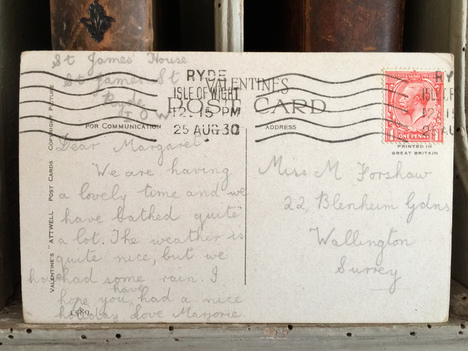 St James House
St James St
Ryde
I O W
RYDE
ISLE OF WIGHT
12.15 PM
25 AUG 30
VALENTINES
POST CARD
FOR COMMUNICATION
ADDRESS
RY
ISLE OF
12.15
25 AU
ONE PENNY
PRINTED IN
GREAT BRITAIN
COPYRIGHT
VALENTINE'S "ATTWELL" POST CARDS
Dear Margaret
We are having
a lovely time and we
have bathed quite
a lot. The weather is
quite nice, but we
had some rain. I
have
hope you had a nice
holiday love Marjorie
Miss M Forshaw
22, Blenheim Gdns
Wallington
Surrey